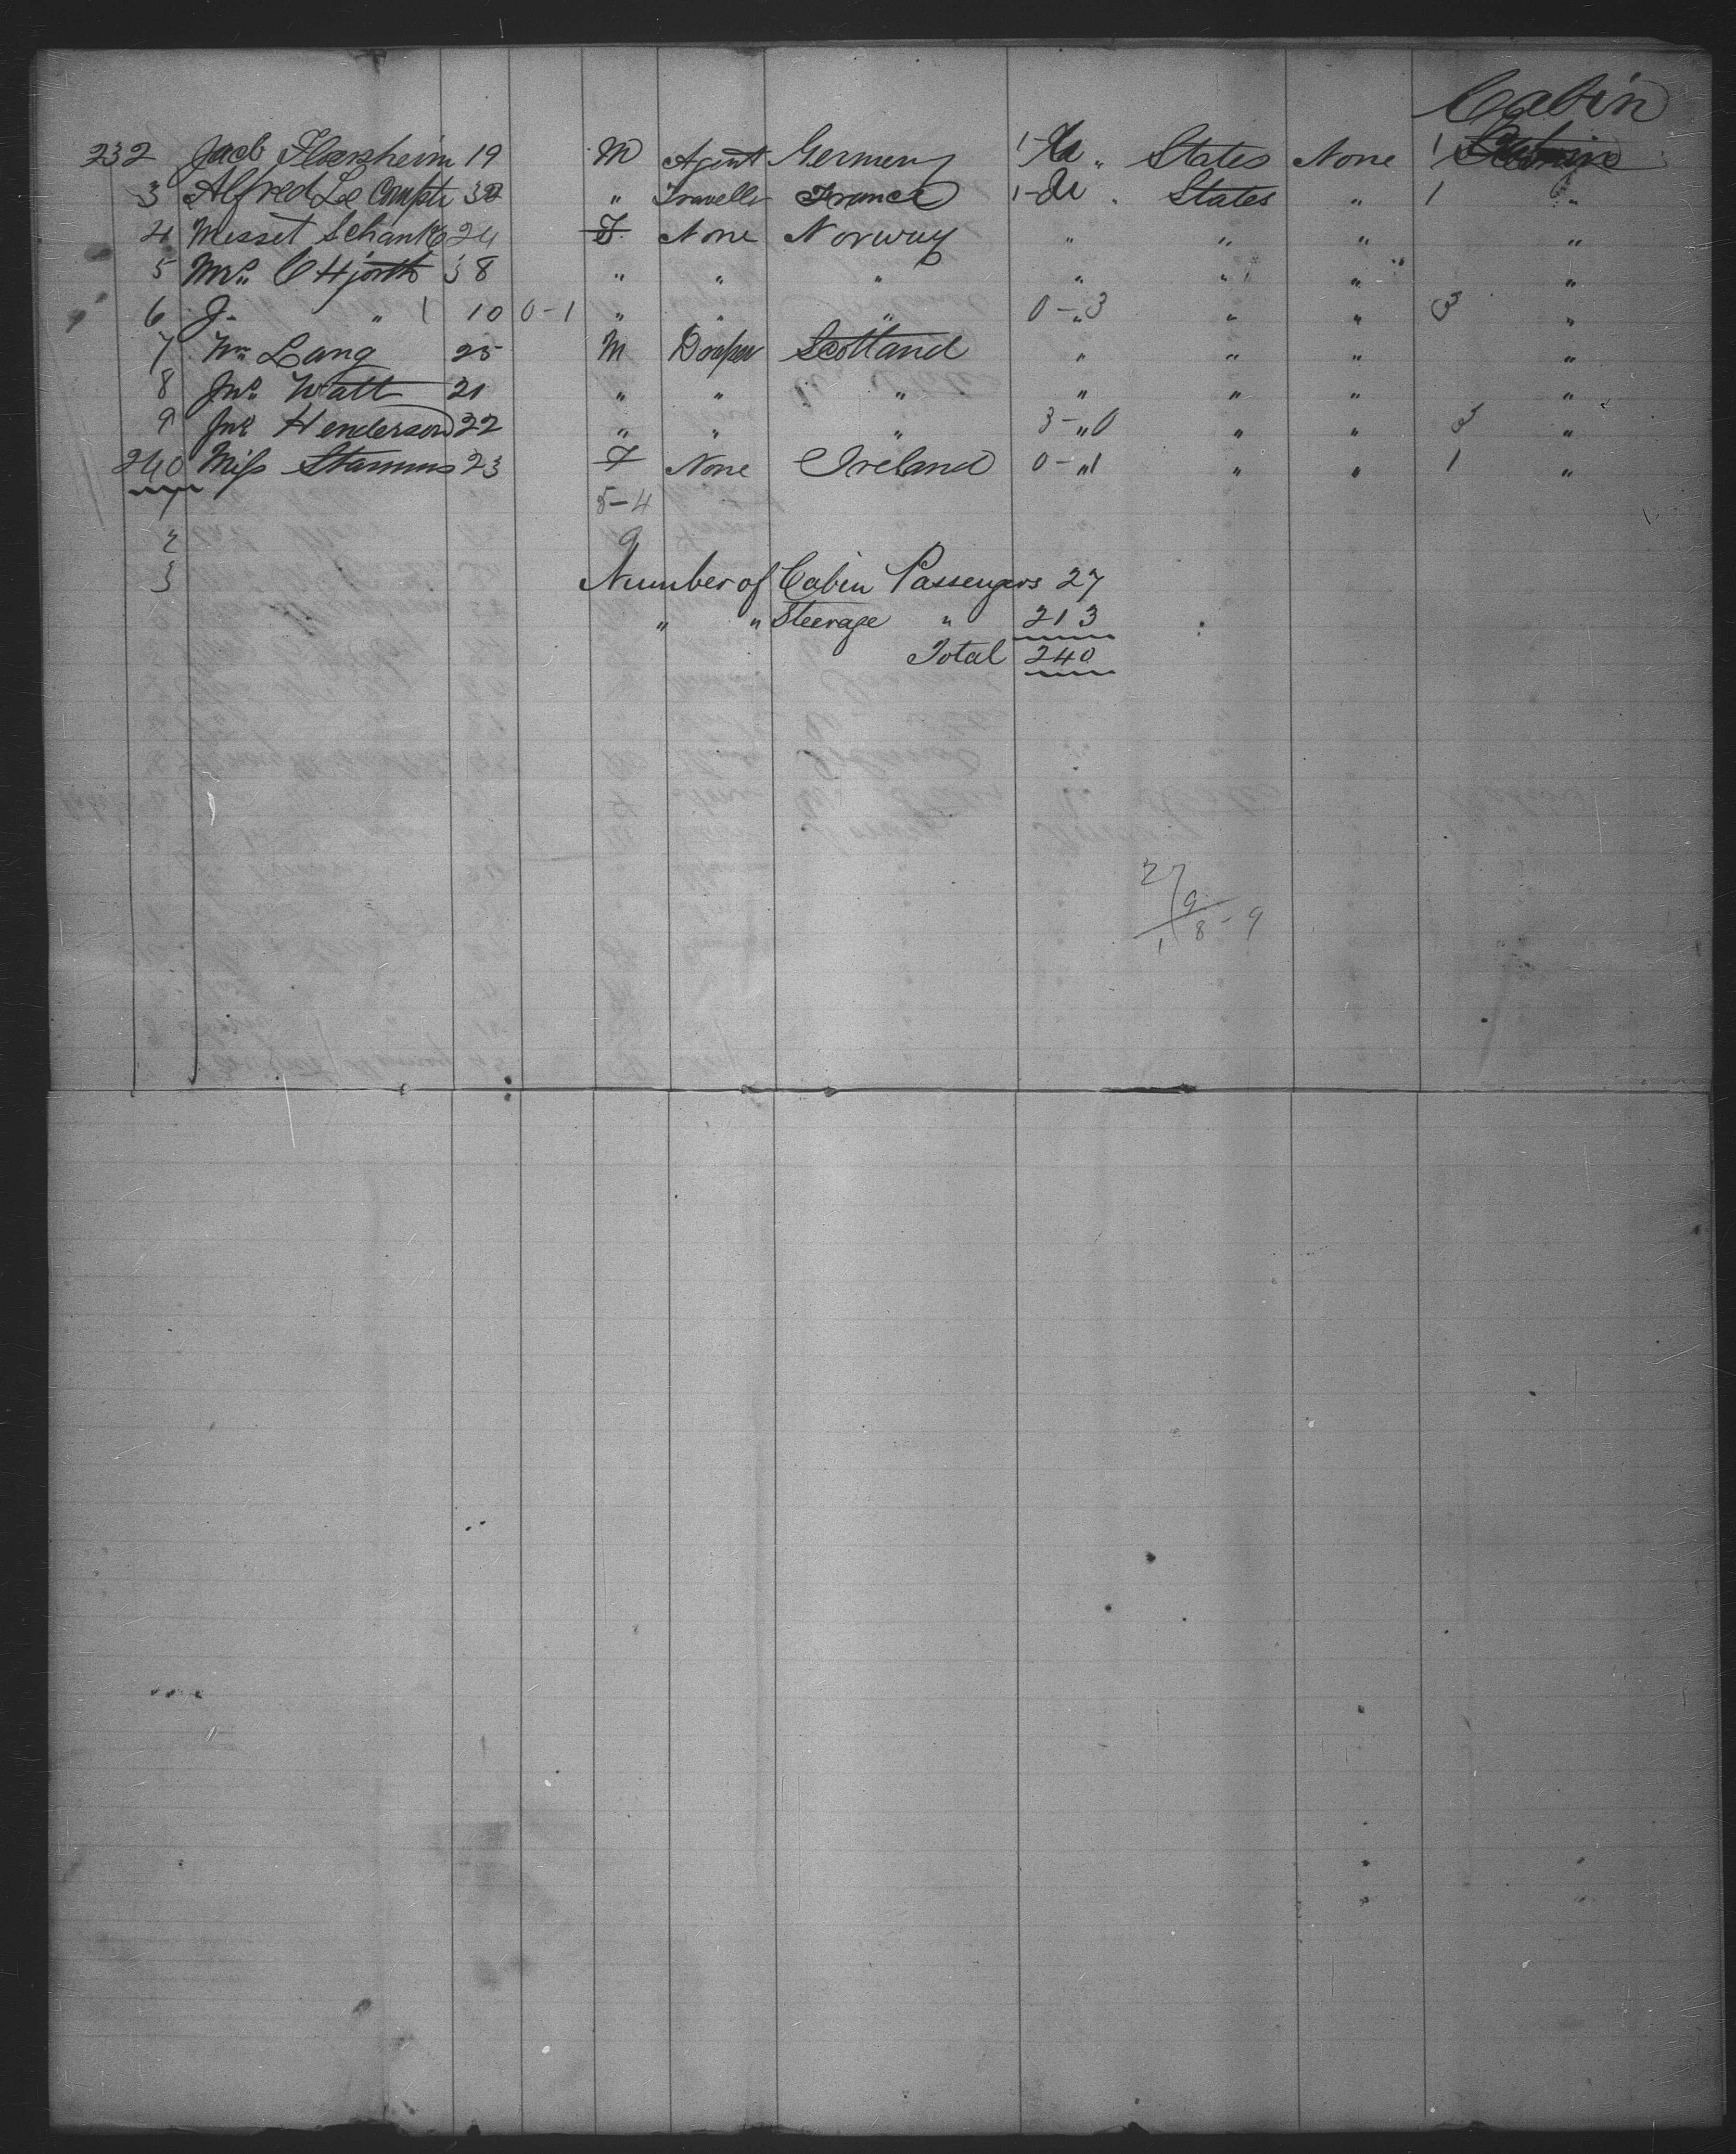 Cabin
232 Jacb Florsheim 19 M Agent Germeny 1- U " States None 1
3 Alfred Le Compte 32 " Traveller France 1- U " States " 1 "
4 Misset Schanke 24 F None Norway " " " "
5 Mrs C Hjorth 38 " " " " " " "
6 J- " 1 10 0-1 " " " 0-"3 " " 3 "
7 Wm Lang 25 M Draper Scotland " " " "
8 Jno Watt 21 " " " " " " "
9 Jno Henderson 22 " " " 3-"0 " " 3 "
240 Miss Stammus 23 F None Ireland 0-"1 " " 1 "
1 5-4
2 9
3 Number of Cabin Passengers 27
" " Steerage " 213
Total 240
27
9
1 8-9